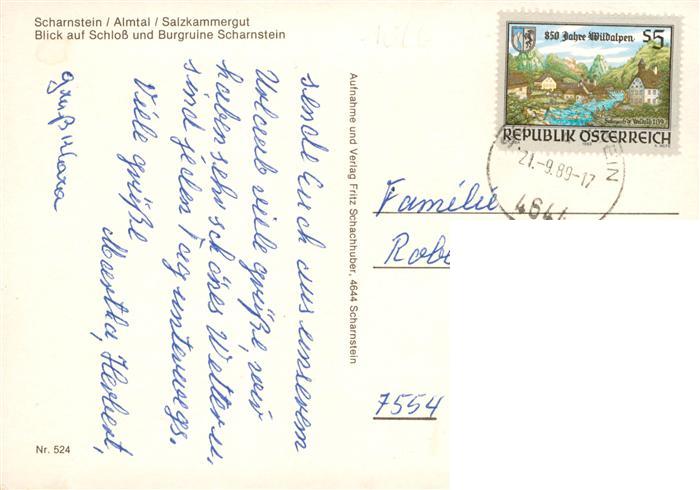 Scharnstein / Almtal / Salzkammergut
Blick auf Schloß und Burgruine Scharnstein
sende Euch aus unserem
Urlaub viele grüße, wir
haben sehr schönes Wetter u.
sind jeden Tag unterwegs.
Viele grüße
Martha, Herbert,
gruß Klara
Aufnahme und Verlag Fritz Schachhuber, 4644 Scharnstein
Nr. 524
850 Jahre Wildalpen
S5
REPUBLIK ÖSTERREICH
21.-9.89-17
464
EIN
Familie
Robe
7554